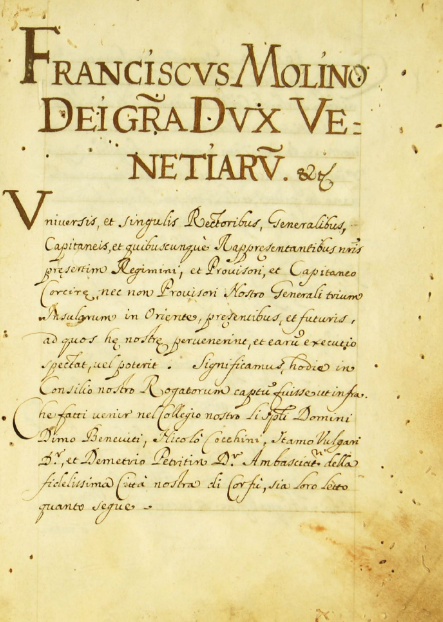 FRANCISCVS MOLINO
DEI GR̃A DVX VE=
NETIARṼ. &c
Vniuersis, et singulis Rectoribus, Generalibus,
Capitaneis, et quibuscunque Rappresentantibus nr̃is
presertim Regimini, et Prouisori, et Capitaneo
Corcirę, nec non Prouisori Nostro Generali trium
Insularum in Oriente, pręsentibus, et futuris,
ad quos hę nostrę peruenerint, et earũ executio
spectat, uel poterit. Significamus, hodie in
Consilio nostro Rogatorum captũ fuisse ut infra.
Che fatti venir nel Collegio nostro li Domini
Dimo Beneuiti, Nicolò Cocchini, Stamo Vulgari
Dr., et Demetrio Petritin Dr. Ambasciatri della
fidelissima Città nostra di Corfù, sia loro letto
quanto segue.